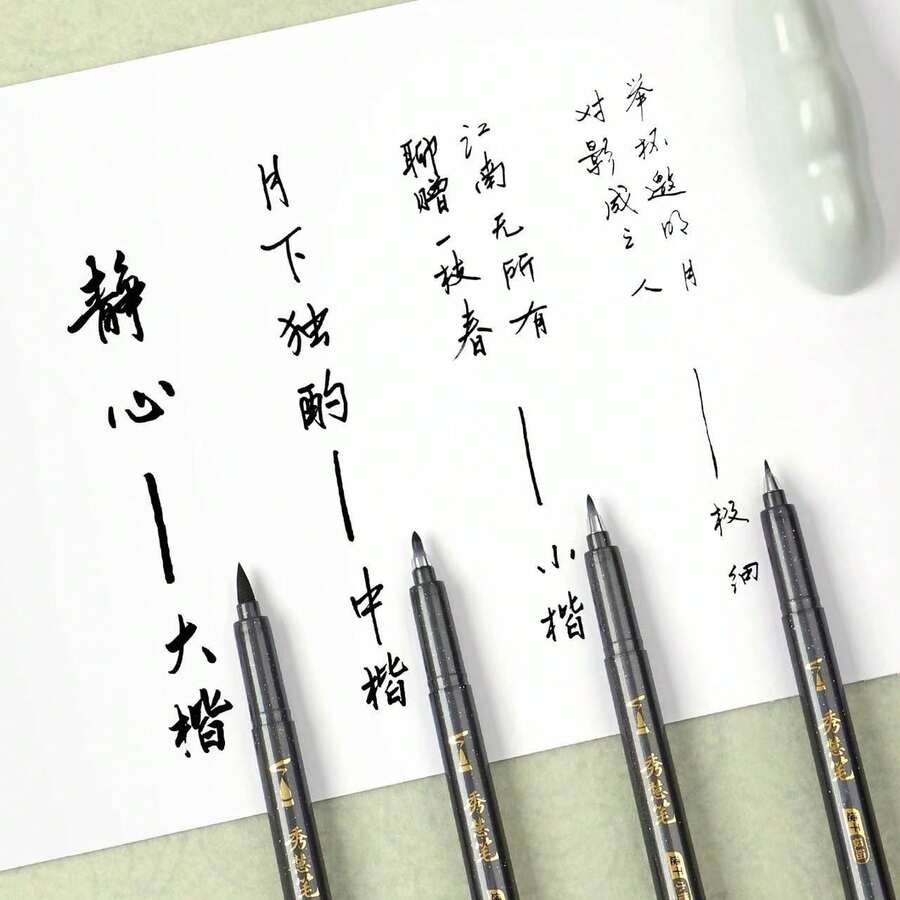 举杯邀明月
对影成三人
极细
江南无所有
聊赠一枝春
小楷
月下独酌
中楷
静心
大楷
秀慧笔
秀慧笔
秀慧笔
秀慧笔